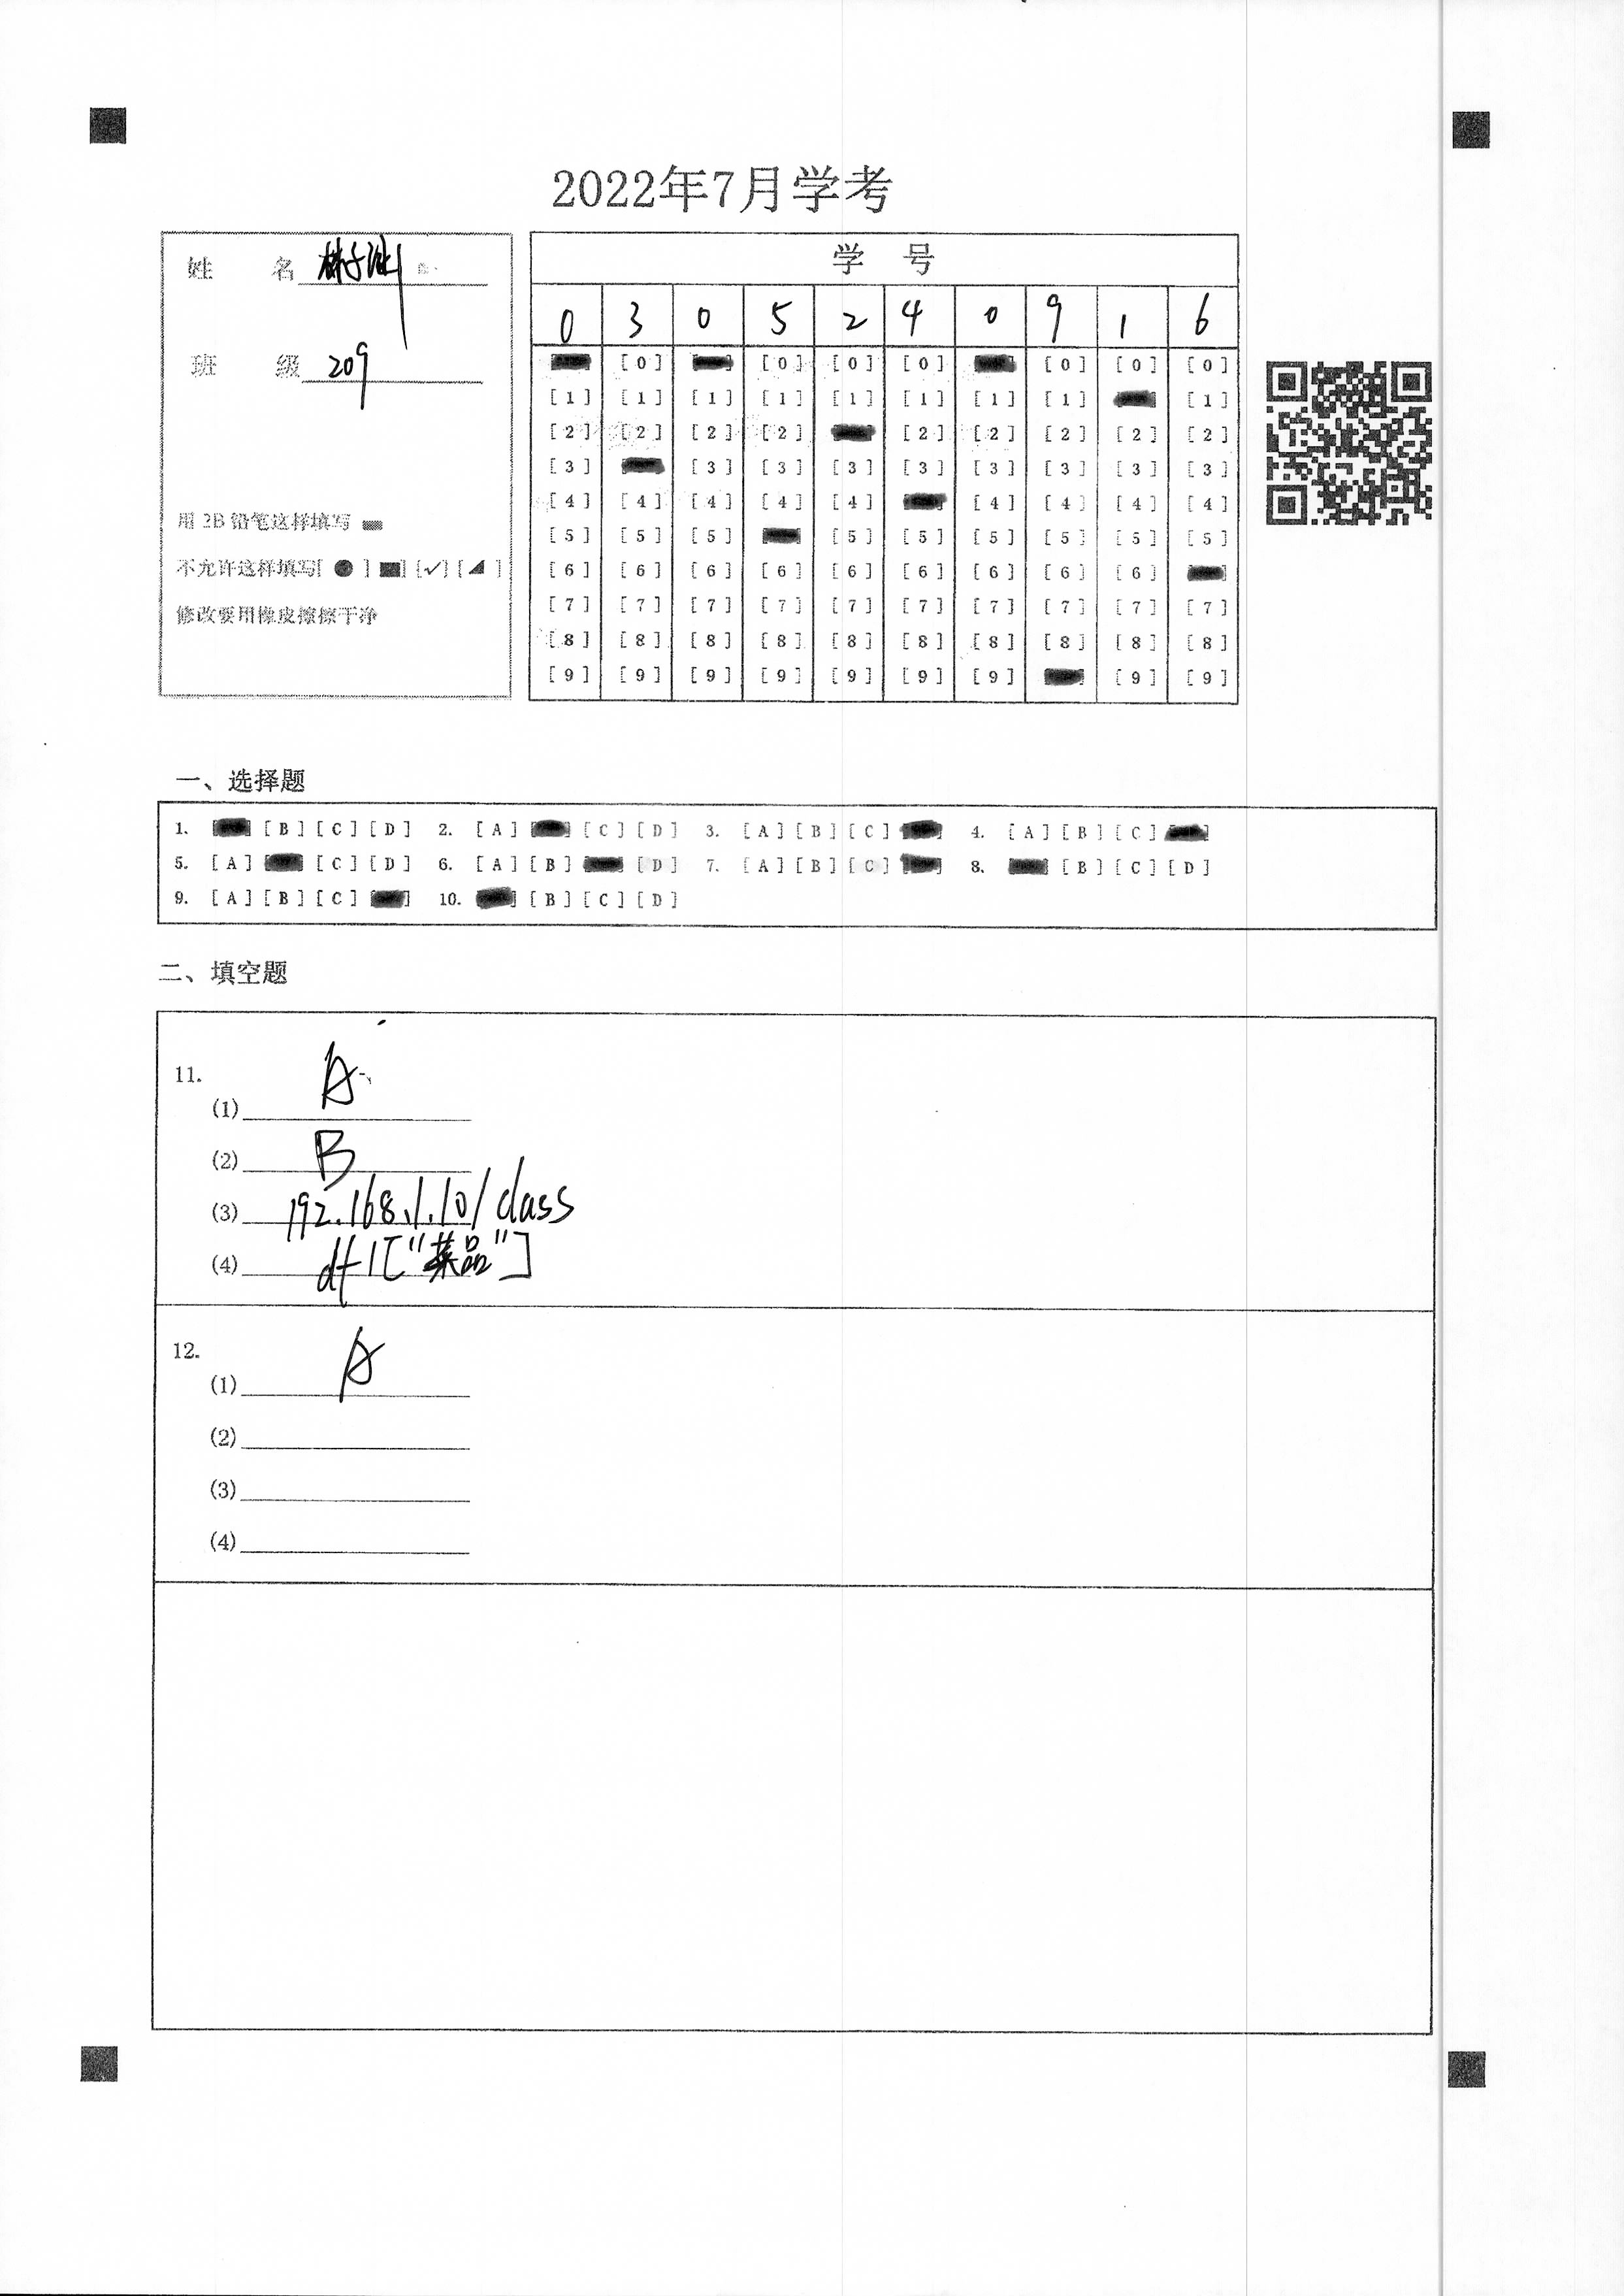 2022年7月学考
姓 名 林子
班 级 209
用 2B 铅笔这样填写
不允许这样填写[ ● ] [■] [✓] [◢ ]
修改要用橡皮擦擦干净
学 号
0 3 0 5 2 4 0 9 1 6
[0] [0] [0] [0] [0] [0] [0]
[1] [1] [1] [1] [1] [1] [1] [1] [1]
[2] [2] [2] [2] [2] [2] [2] [2] [2]
[3] [3] [3] [3] [3] [3] [3] [3] [3]
[4] [4] [4] [4] [4] [4] [4] [4] [4]
[5] [5] [5] [5] [5] [5] [5] [5] [5]
[6] [6] [6] [6] [6] [6] [6] [6] [6]
[7] [7] [7] [7] [7] [7] [7] [7] [7] [7]
[8] [8] [8] [8] [8] [8] [8] [8] [8] [8]
[9] [9] [9] [9] [9] [9] [9] [9] [9]
一、选择题
1. [B] [C] [D] 2. [A] [C] [D] 3. [A] [B] [C] 4. [A] [B] [C]
5. [A] [C] [D] 6. [A] [B] [D] 7. [A] [B] [C] 8. [B] [C] [D]
9. [A] [B] [C] 10. [B] [C] [D]
二、填空题
11.
(1) A
(2) B
(3) 192.168.1.10/class
(4) df1["菜品"]
12.
(1) A
(2)
(3)
(4)